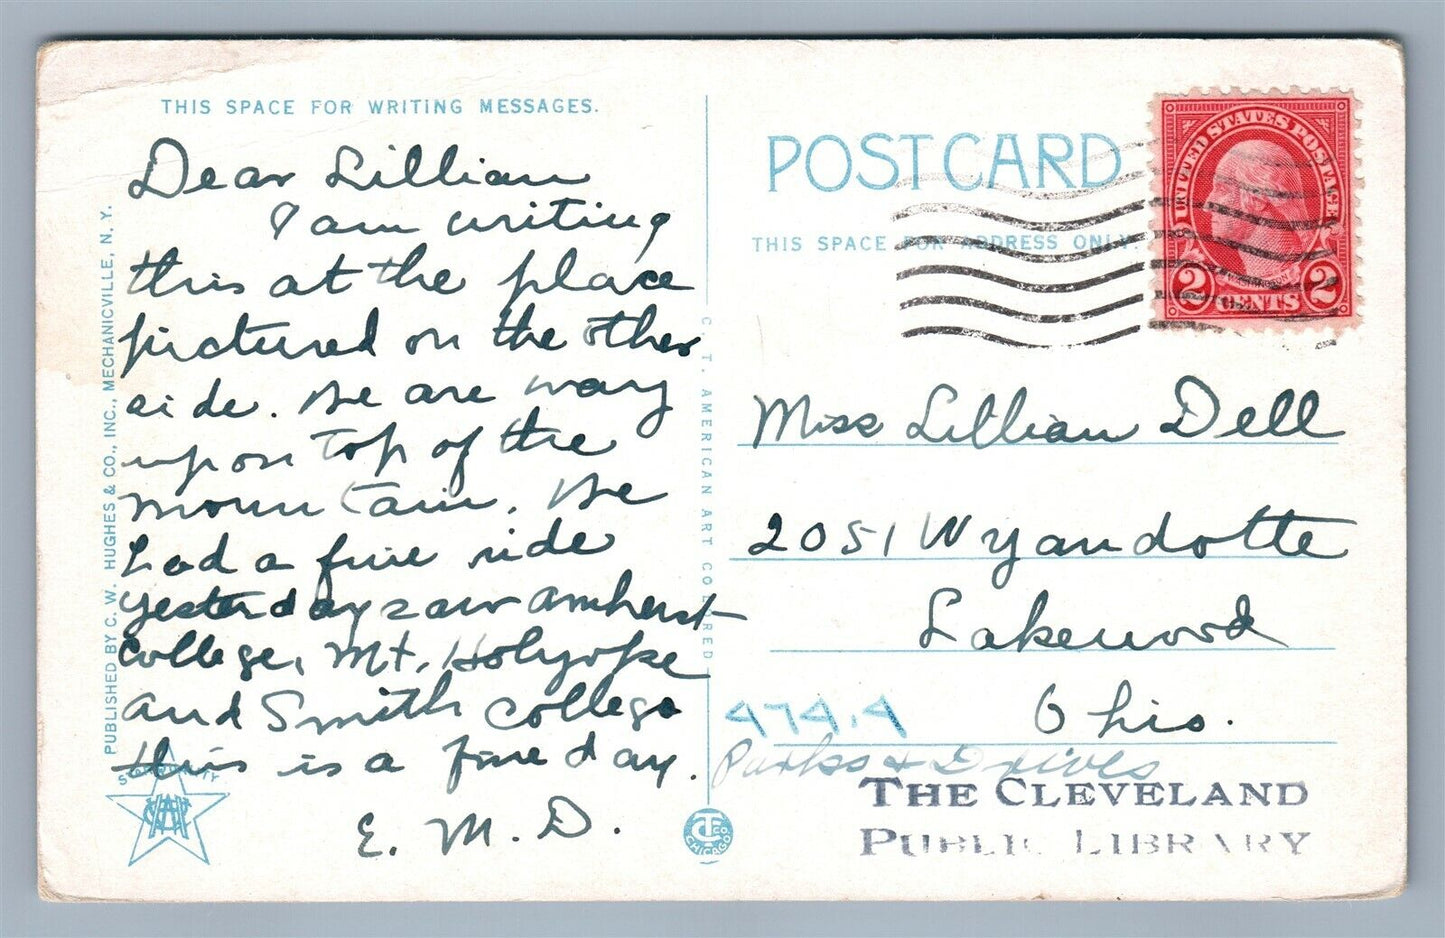 THIS SPACE FOR WRITING MESSAGES.
Dear Lillian
I am writing
this at the place
pictured on the other
side. We are way
up on top of the
mountain. We
had a fine ride
yesterday saw Amherst
College, Mt. Holyoke
and Smith College
this is a fine day.
E. M. D.
PUBLISHED BY C. W. HUGHES & CO., INC., MECHANICVILLE, N. Y.
QUALITY
C. T. AMERICAN ART COLORED
CT CO.
CHICAGO
POST CARD
THIS SPACE FOR ADDRESS ONLY.
UNITED STATES POSTAGE
2 CENTS 2
Miss Lillian Dell
2051 Wyandotte
Lakewood
Ohio.
974.4
Parks & Drives
THE CLEVELAND
PUBLIC LIBRARY